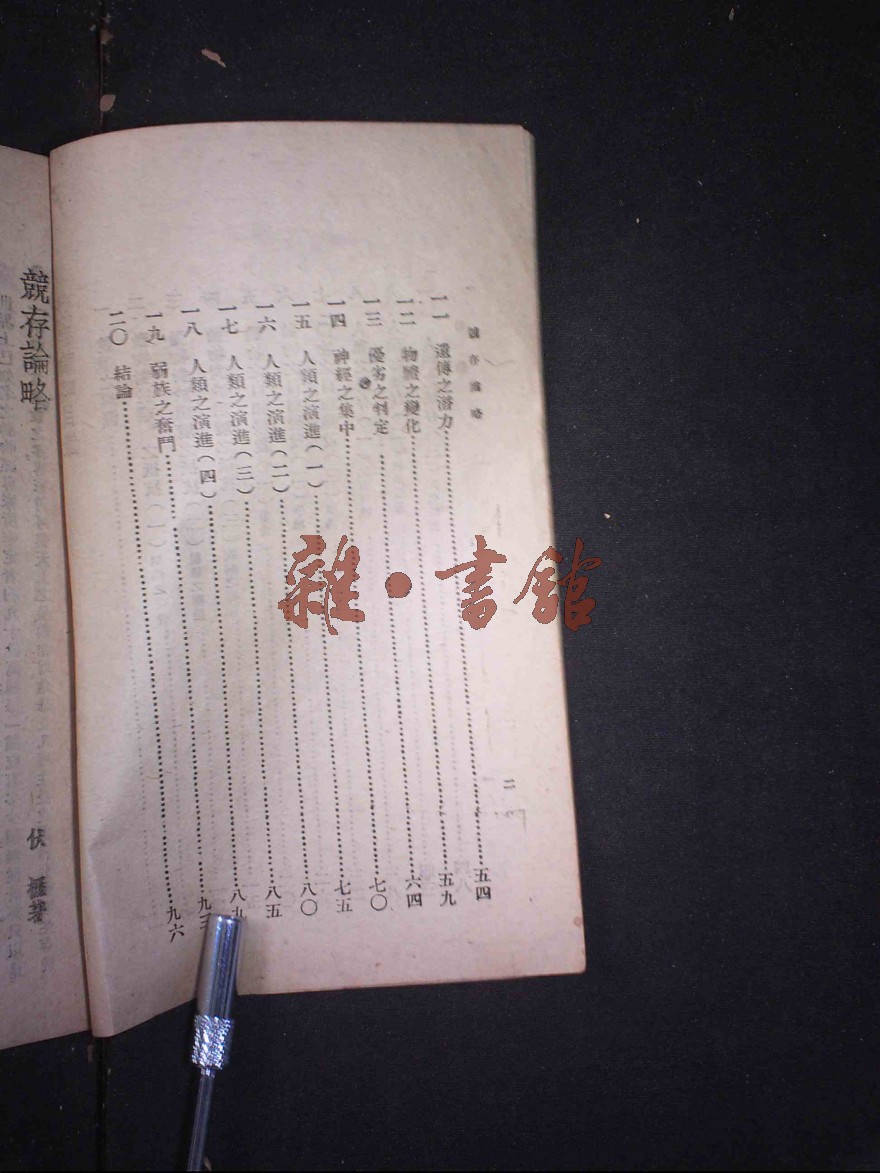 競存論略
二
一一 遺傳之潛力……五四
一二 物體之變化……五九
一三 優劣之判定……六四
一四 神經之集中……七〇
一五 人類之演進(一)……七五
一六 人類之演進(二)……八〇
一七 人類之演進(三)……八五
一八 人類之演進(四)……八九
一九 弱族之奮鬥……九三
二〇 結論……九六
競存論略
伏 著
雜·書館